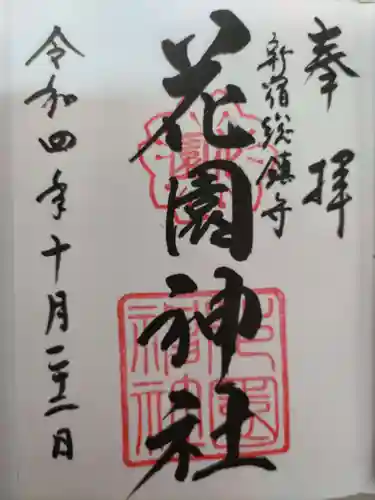 奉拝
新宿総鎮守
花園神社
令和四年十月二十一日